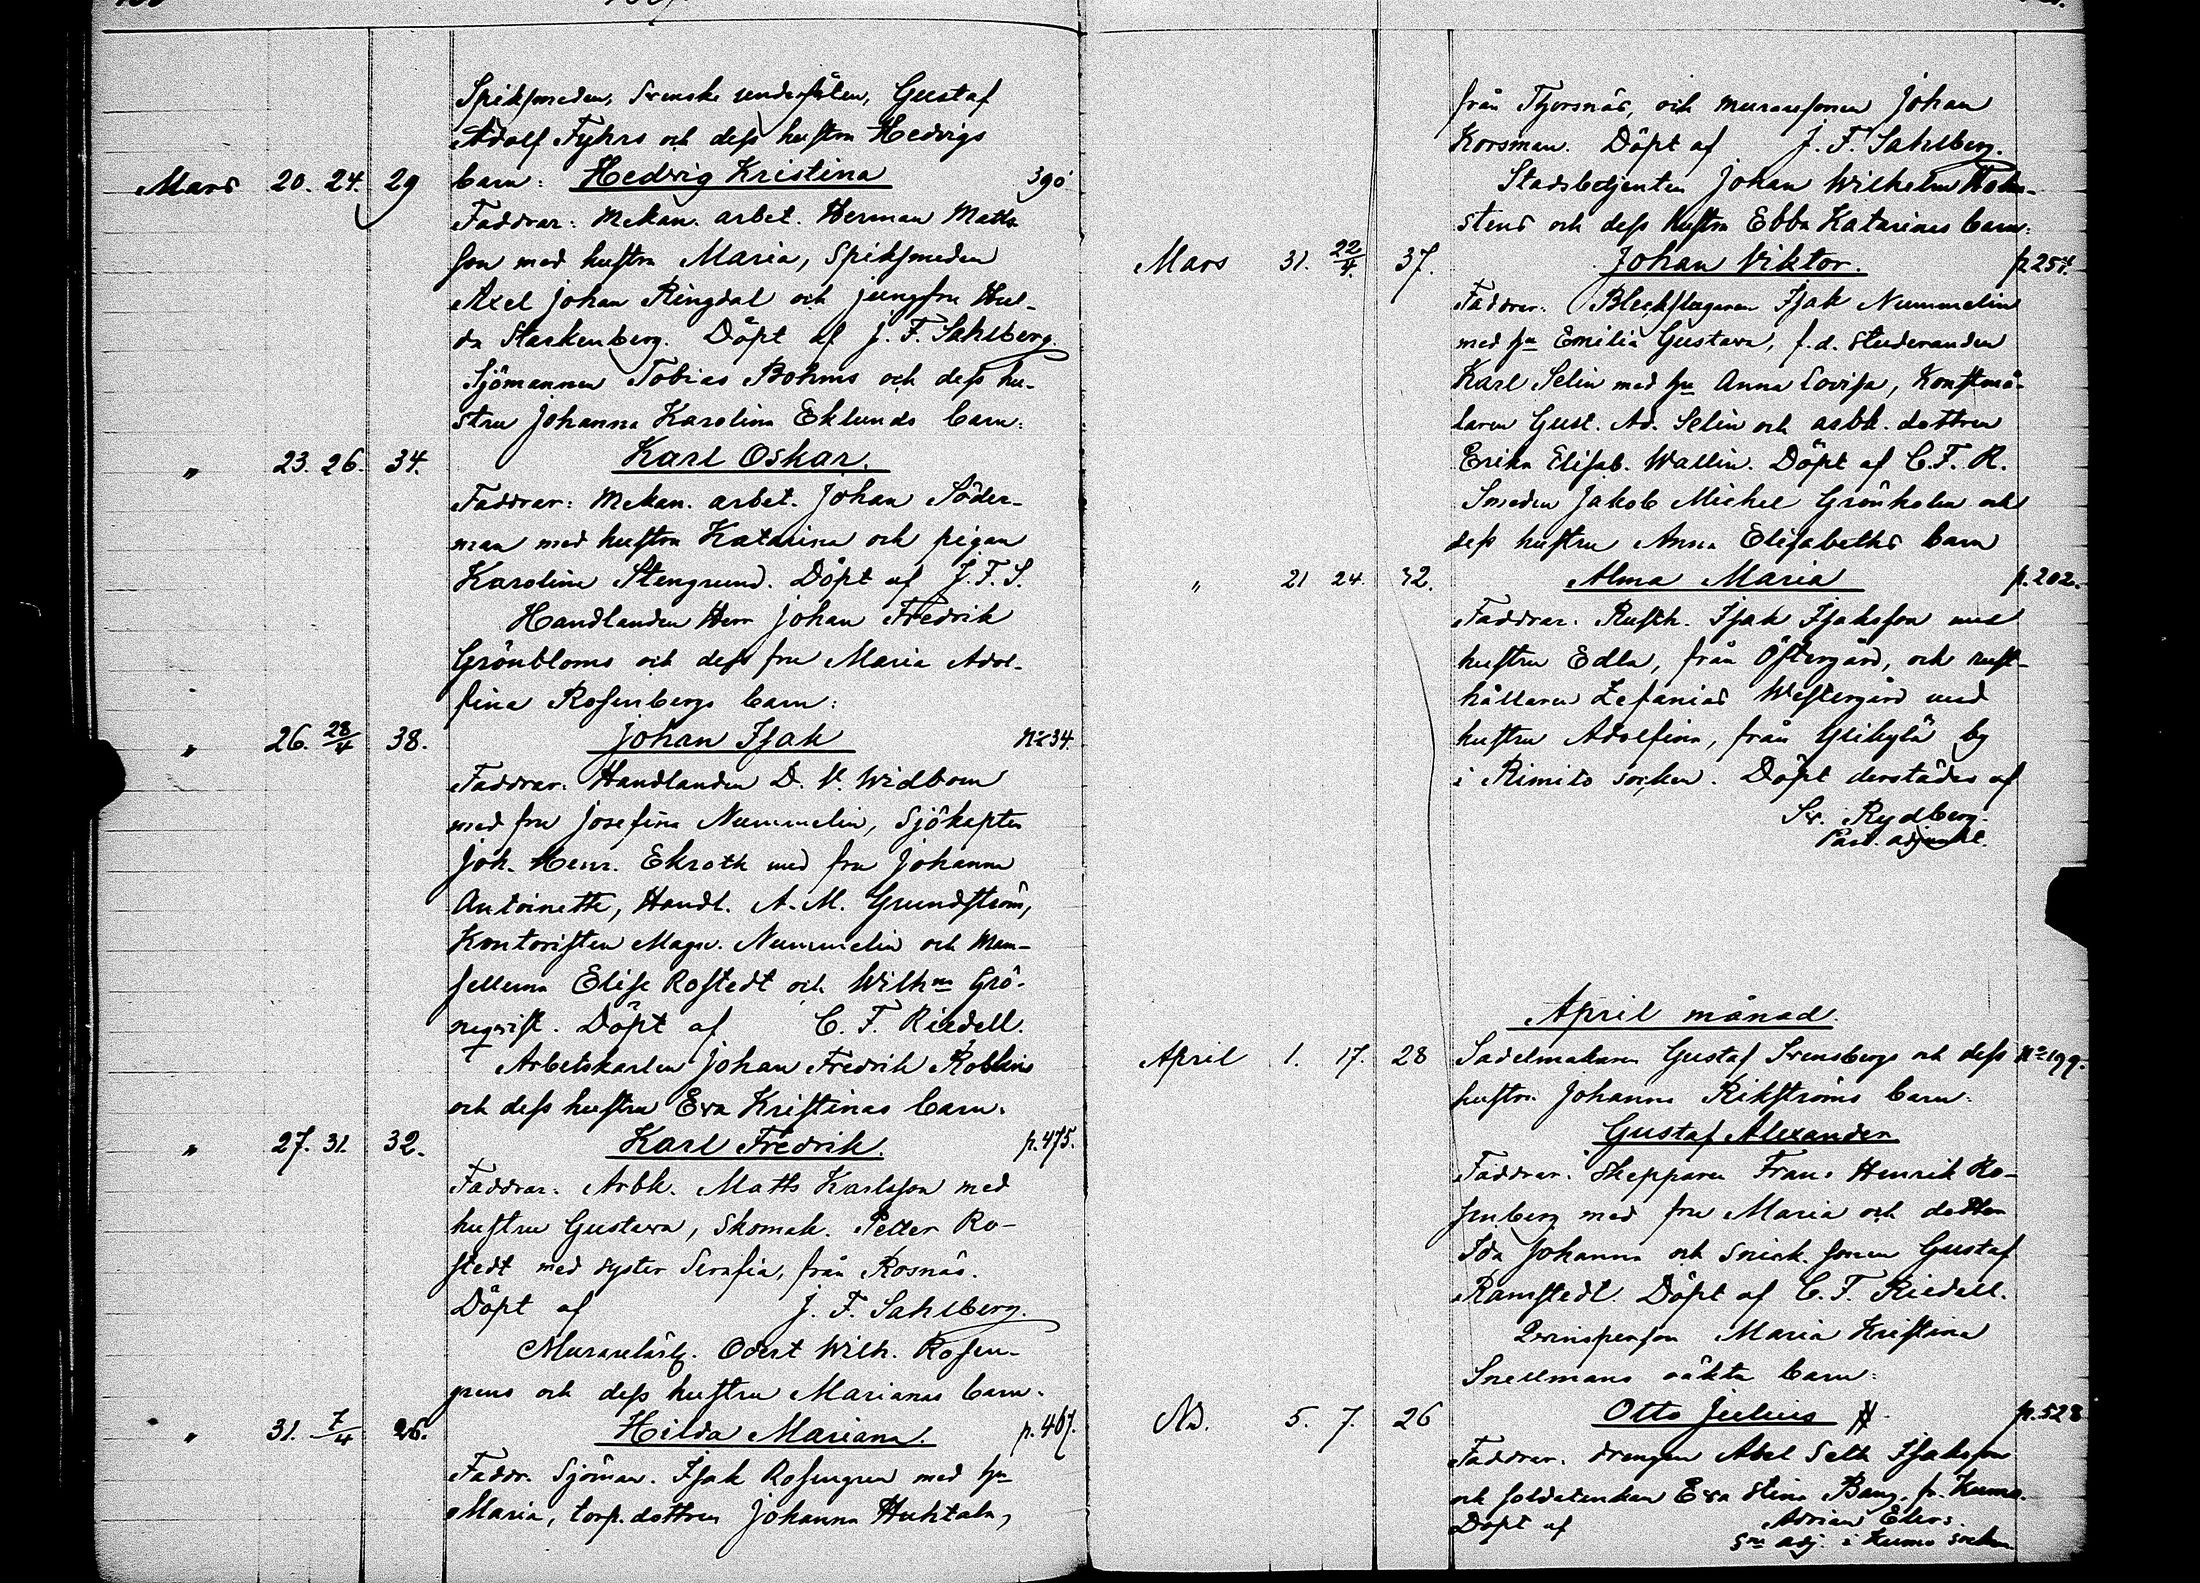 Spiksmeden, Svenske undersåten, Gustaf
Adolf Fyhrs och dess hustru Hedvigs
Mars 20. 24. 29 barn: Hedvig Kristina 390
Faddrar: Mekan. arbet. Herman Matts
son med hustru Maria, Spiksmeden
Axel Johan Ringdal och jungfru Hul-
da Starkenberg. Döpt af J. F. Sahlberg.
Sjömannen Tobias Bohms och dess hu-
stru Johanna Karolina Eklunds barn:
" 23. 26. 34. Karl Oskar.
Faddrar: Mekan. arbet. Johan Söder-
man med hustru Katarina och pigan
Karolina Stengrund. Döpt af J. F. S.
Handlanden Herr Johan Fredrik
Grönbloms och dess fru Maria Adol-
fina Rosenbergs barn:
" 26. 28/4 38. Johan Isak No 34.
Faddrar: Handlanden D. V. Widbom
med fru Josefina Nummelin, Sjökapten
Joh. Henr. Ekroth med fru Johanna
Antoinette, Handl. A. M. Grundström,
Kontoristen Magn. Nummelin och Mam-
sellerna Elise Rostedt och Wilhna Grö-
neqvist. Döpt af C. F. Riedell.
Arbetskarlen Johan Fredrik Roblins
och dess hustru Eva Kristinas barn.
" 27. 31. 32. Karl Fredrik. p. 475.
Faddrar: Arbk. Matts Karlsson med
hustru Gustava, Skomak. Petter Ro-
stedt med syster Serafia, från Rosnäs.
Döpt af J. F. Sahlberg.
Murarelärl. Odert Wilh. Rosen-
grens och dess hustru Marianas barn.
" 31. 7/4 26. Hilda Mariana. p. 467.
Faddr. Sjöman. Isak Rosengren med hu
Maria, torp. dottren Johanna Huhtala,
från Thorsnäs, och muraresonen Johan
Korsman. Döpt af J. F. Sahlberg.
Stadsbetjenten Johan Wilhelm Holm-
stens och dess hustru Ebba Katarinas barn:
Mars 31. 22/4. 37. Johan Viktor. p 254.
Faddrar: Bleckslagaren Isak Nummelin
med hu Emilia Gustava, f. d. Studeranden
Karl Selin med hu Anna Lovisa, Konstmå-
laren Gust. Ad. Selin och arbk. dottren
Erika Elisab. Wallin. Döpt af C. F. R.
Smeden Jakob Michel Grönholm och
dess hustru Anna Elisabeths barn
" 21 24. 32. Alma Maria p. 202.
Faddrar. Rusth. Isak Isaksson med
hustru Edla, från Östergård, och rust-
hållaren Zefanias Westergård med
hustru Adolfina, från Ylikylä by
i Rimito socken. Döpt derstädes af
Sv. Rydberg.
Past. adjunkt.
April månad.
April 1. 17. 28 Sadelmakaren Gustaf Svensbergs och dess No 199.
hustru Johanna Rikströms barn:
Gustaf Alexander
Faddrar. Skepparen Frans Henrik Ro-
senberg med fru Maria och dotter
Ida Johanna och Snick. sonen Gustaf
Ramstedt. Döpt af C. F. Riedell.
Qvinspersonen Maria Kristina
Snellmans oäkta barn:
No. 5. 7. 26 Otto Julius p. 528
Faddrar. drengen Abel Seth Isaksson
och soldatenkan Eva Stina Bang, fr. Kumo.
Döpt af Adrian Elers.
sna adj. i Kumo socken